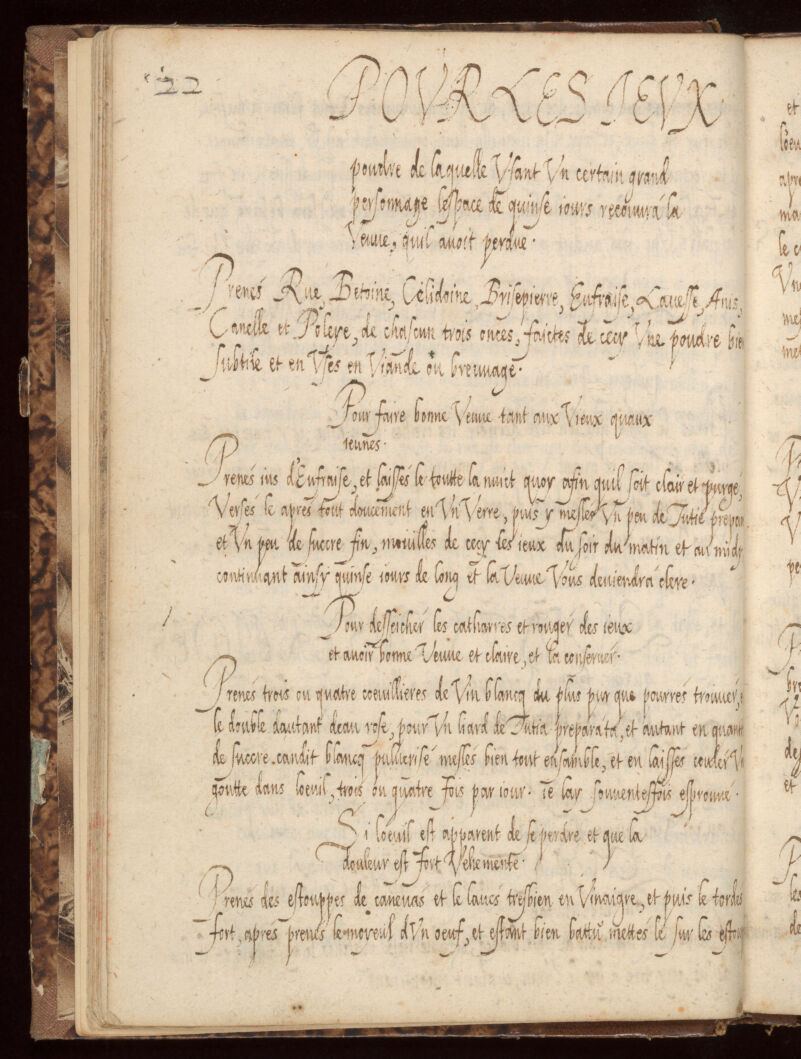 22
POUR LES IEUX
poudre de laquelle Usant Un certain grand
personnage lespace de quinse iours recouura la
Veuue, quil auoit perdue.
Prenés Rue, Betoine, Célidoine, Brisepierre, Eufraise, Liuesse, Anis,
Canelle et Poleye, de chascun trois onces, faictes de cecy Une poudre bie
subtile et en Usés en Viande ou breuuage.
Pour faire bonne Veuue tant aux Vieux quaux
ieunes.
Prenés ius d'Eufraise, et laissés le toutte la nuict quoy afin quil soit clair et purge,
Versés le apres tout doucement en Un Verre, puis y mesles Un peu de Tutie prepar
et Un peu de succre fin, mouilles de cecy les ieux du soir du matin et au midy
continuant ainsy quinse iours de long et la Veuue Vous deuiendra clere.
Pour desseicher les catharres et rouger des ieux
et auoir bonne Veuue et claire, et la conseruer.
Prenés trois ou quatre coeuillieres de Vin blancq du plus pur que pourres trouuer,
le double dautant deau rose, pour Un liard de Tutia preparata, et autant en quant
de succre candit blancq puluerisé mesles bien tout ensamble, et en laissés couler Un
goutte dans loeuil, trois ou quatre fois par iour. ie lay souuentesfois esprouue.
Si loeuil est apparent de se perdre et que la
douleur est fort Vehemente.
Prenés des estouppes de caneuas et le laues tresbien en Vinaigre, et puis le tordes
fort, apres prenés le moyeul dUn oeuf, et estant bien battu mettes le sur les estou